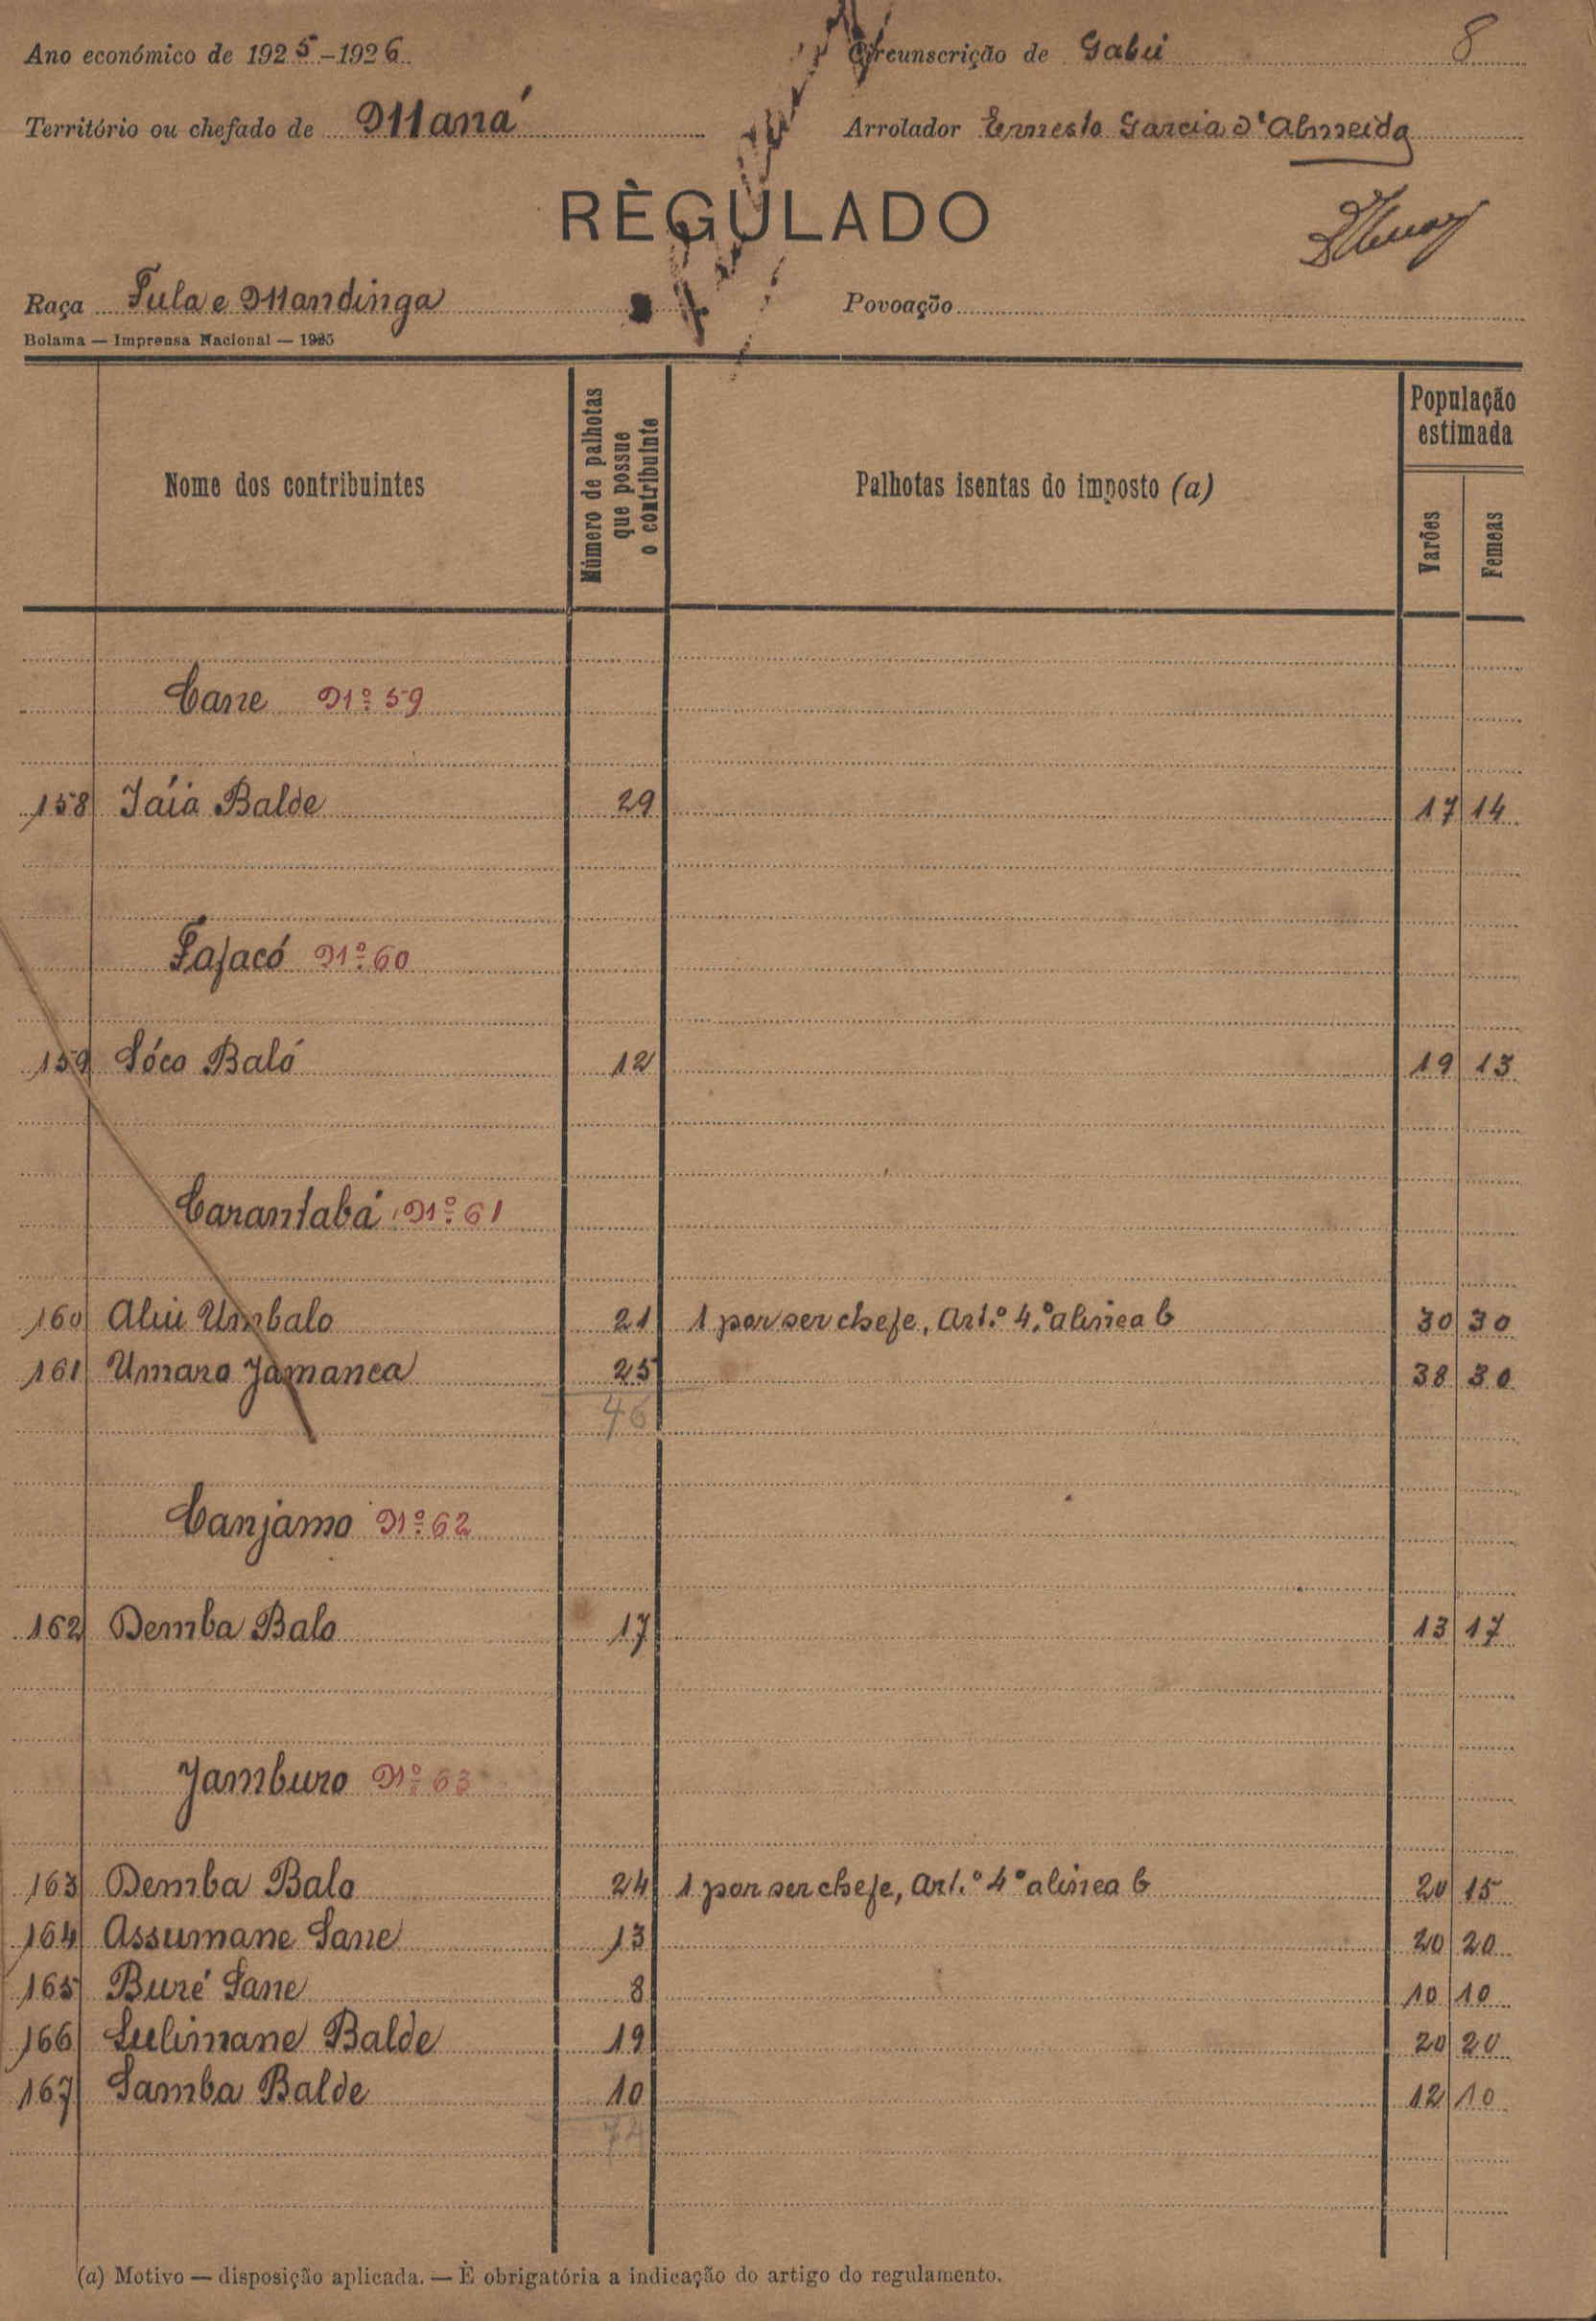 Ano económico de 1925-1926 Circunscrição de Gabú 8
Território ou chefado de Maná Arrolador Ernesto Garcia d'Almeida
RÈGULADO
Raça Fula e Mandinga Povoação
Bolama — Imprensa Nacional — 1925
Nome dos contribuintes
Número de palhotas que possue o contribuinte
Palhotas isentas do imposto (a)
População estimada
Varões
Femeas
Cane Nº 59
158 Jáia Balde 29 17 14
Fajacó Nº 60
159 Sóco Baló 12 19 13
Carantabá Nº 61
160 Aliu Umbalo 21 1 por ser chefe, Art.º 4.º alinea b 30 30
161 Umaro Jamanca 25 38 30
46
Canjamo Nº 62
162 Demba Balo 17 13 17
Jamburo Nº 63
163 Demba Balo 24 1 por ser chefe, Art.º 4º alinea b 20 15
164 Assumane Sane 13 20 20
165 Buré Sane 8 10 10
166 Sulimane Balde 19 20 20
167 Samba Balde 10 12 10
74
(a) Motivo — disposição aplicada. — È obrigatória a indicação do artigo do regulamento.